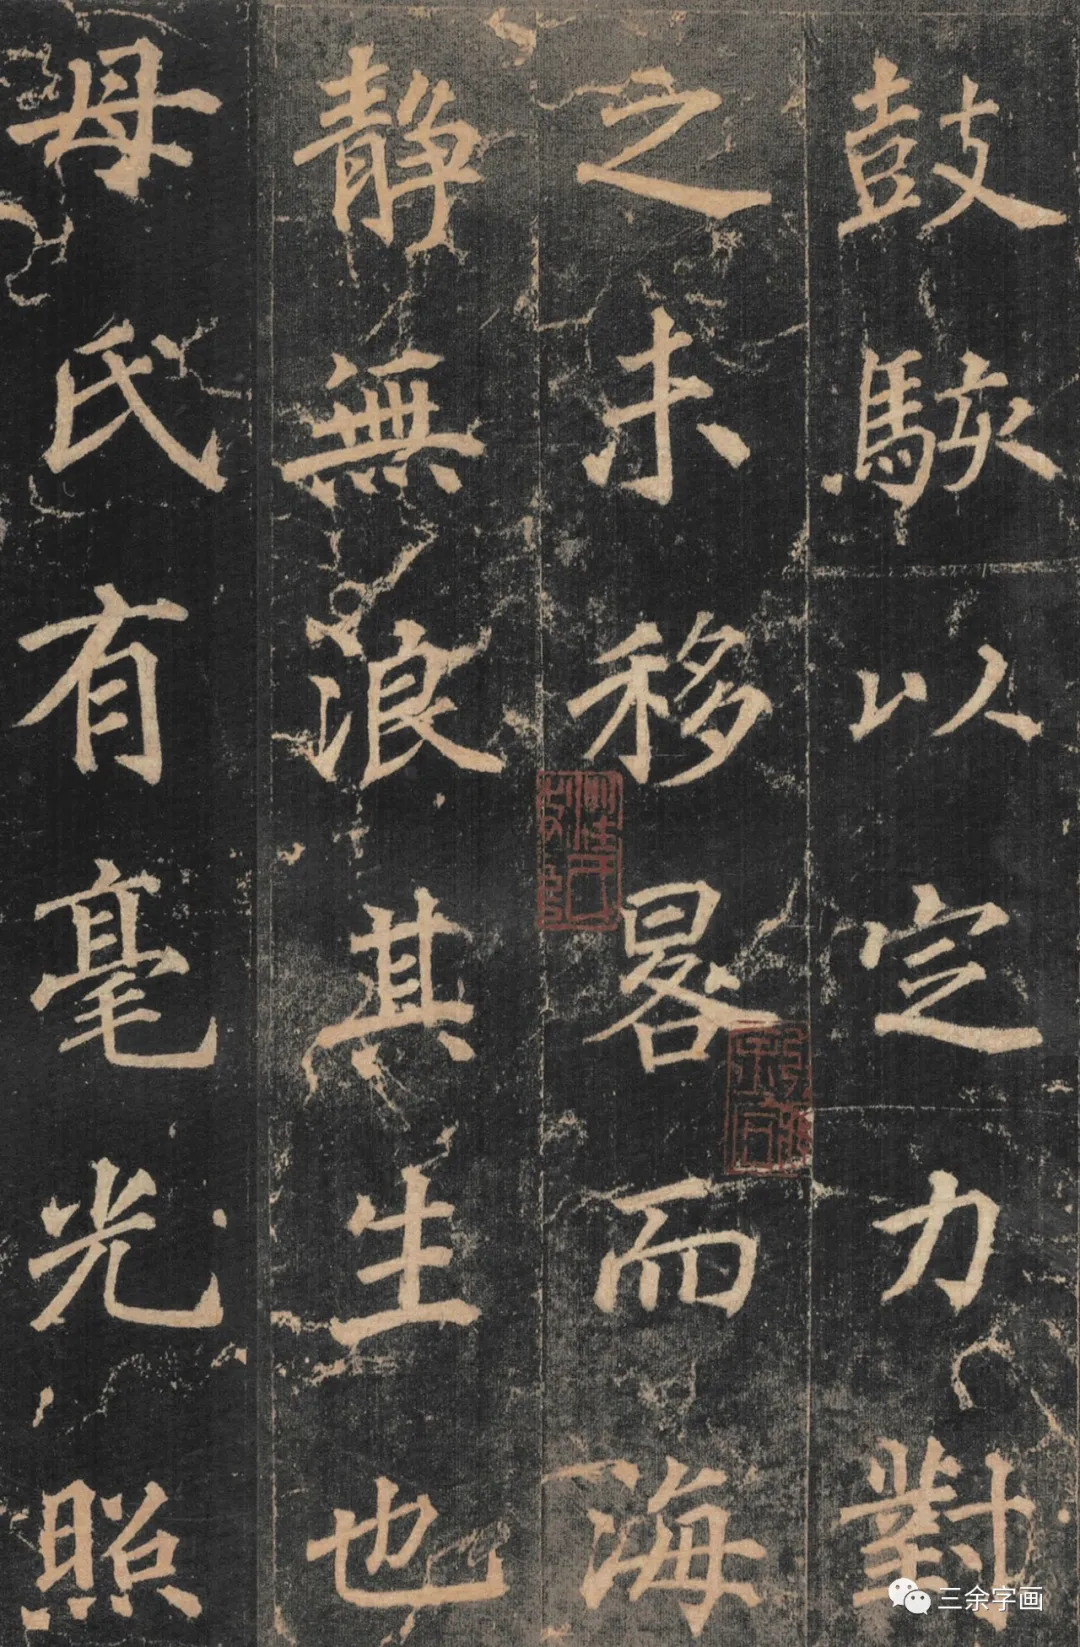 鼓駭以定力對
之未移晷而海
静無浪其生也
母氏有毫光照
三余字画